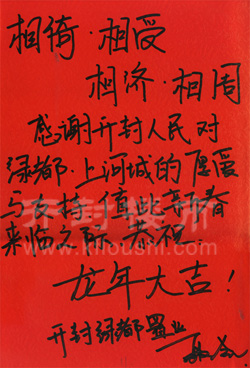 相倚·相爱
相济·相周
感谢开封人民对
绿都·上河城的厚爱
与支持，值此新春
来临之际 恭祝
龙年大吉！
开封绿都置业
开封楼市
www.kfloushi.com